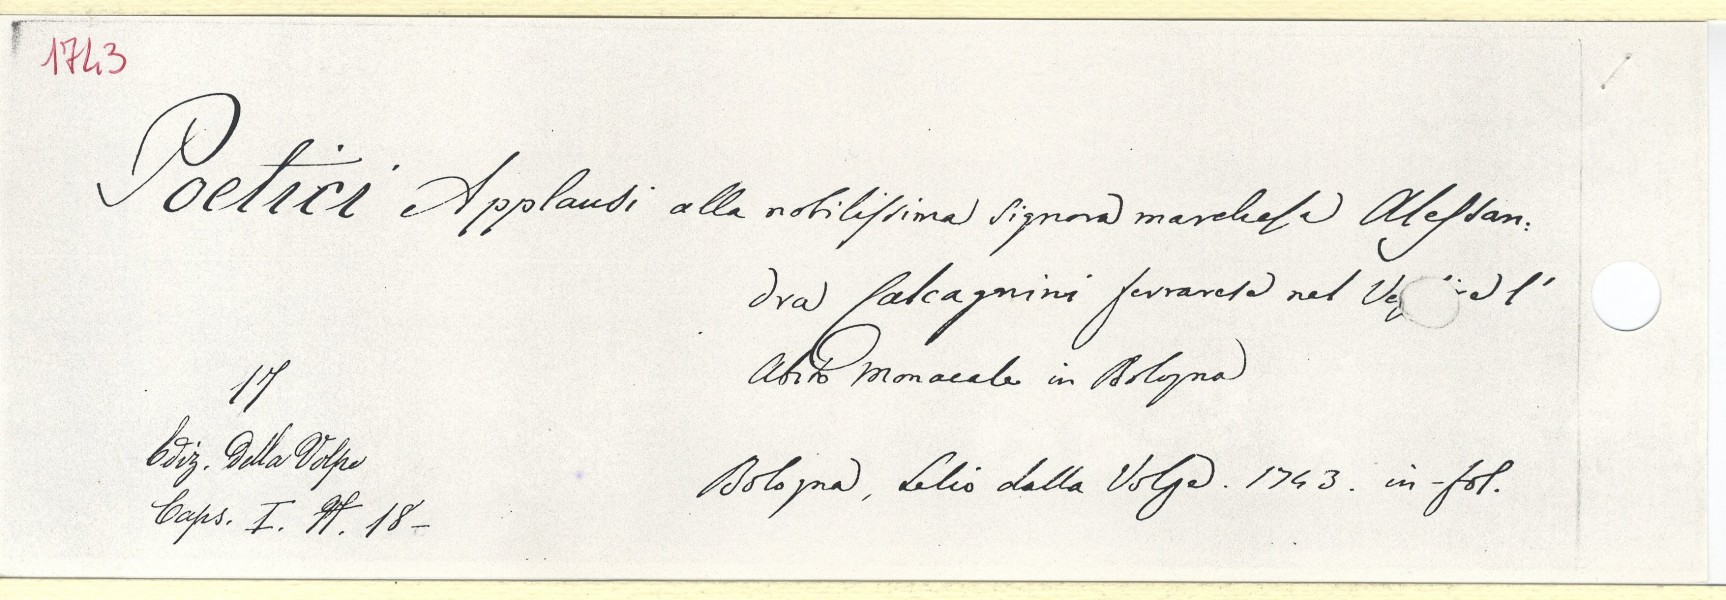 1743
Poetici Applausi alla nobilissima signora marchesa Alessan:
dra Calcagnini ferrarese nel l'
Abito Monacale in Bologna
17
Ediz. Della Volpe
Caps. I. N. 18-
Bologna, Lelio dalla Volpe. 1743. in-fol.